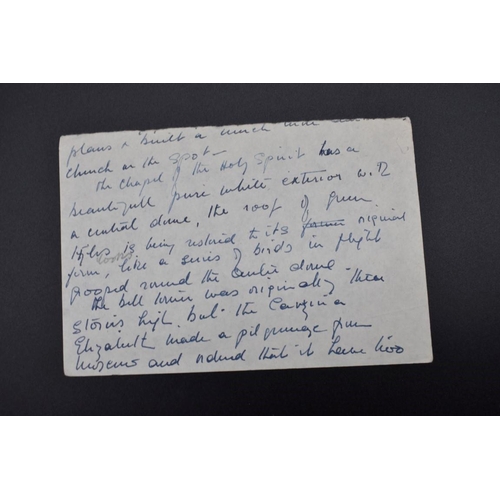 plans & built a much more
church on the spot —
The Chapel of the Holy Spirit has a
beautifull pure white exterior with
a central dome, the roof of green
tiles is being restored to its former original
form, looks like a series of birds in flight
grooped round the centre dome
The bell tower was originally three
stories high, but the Czarina
Elizabeth made a pilgrimage from
Moscow and orderd that it have two